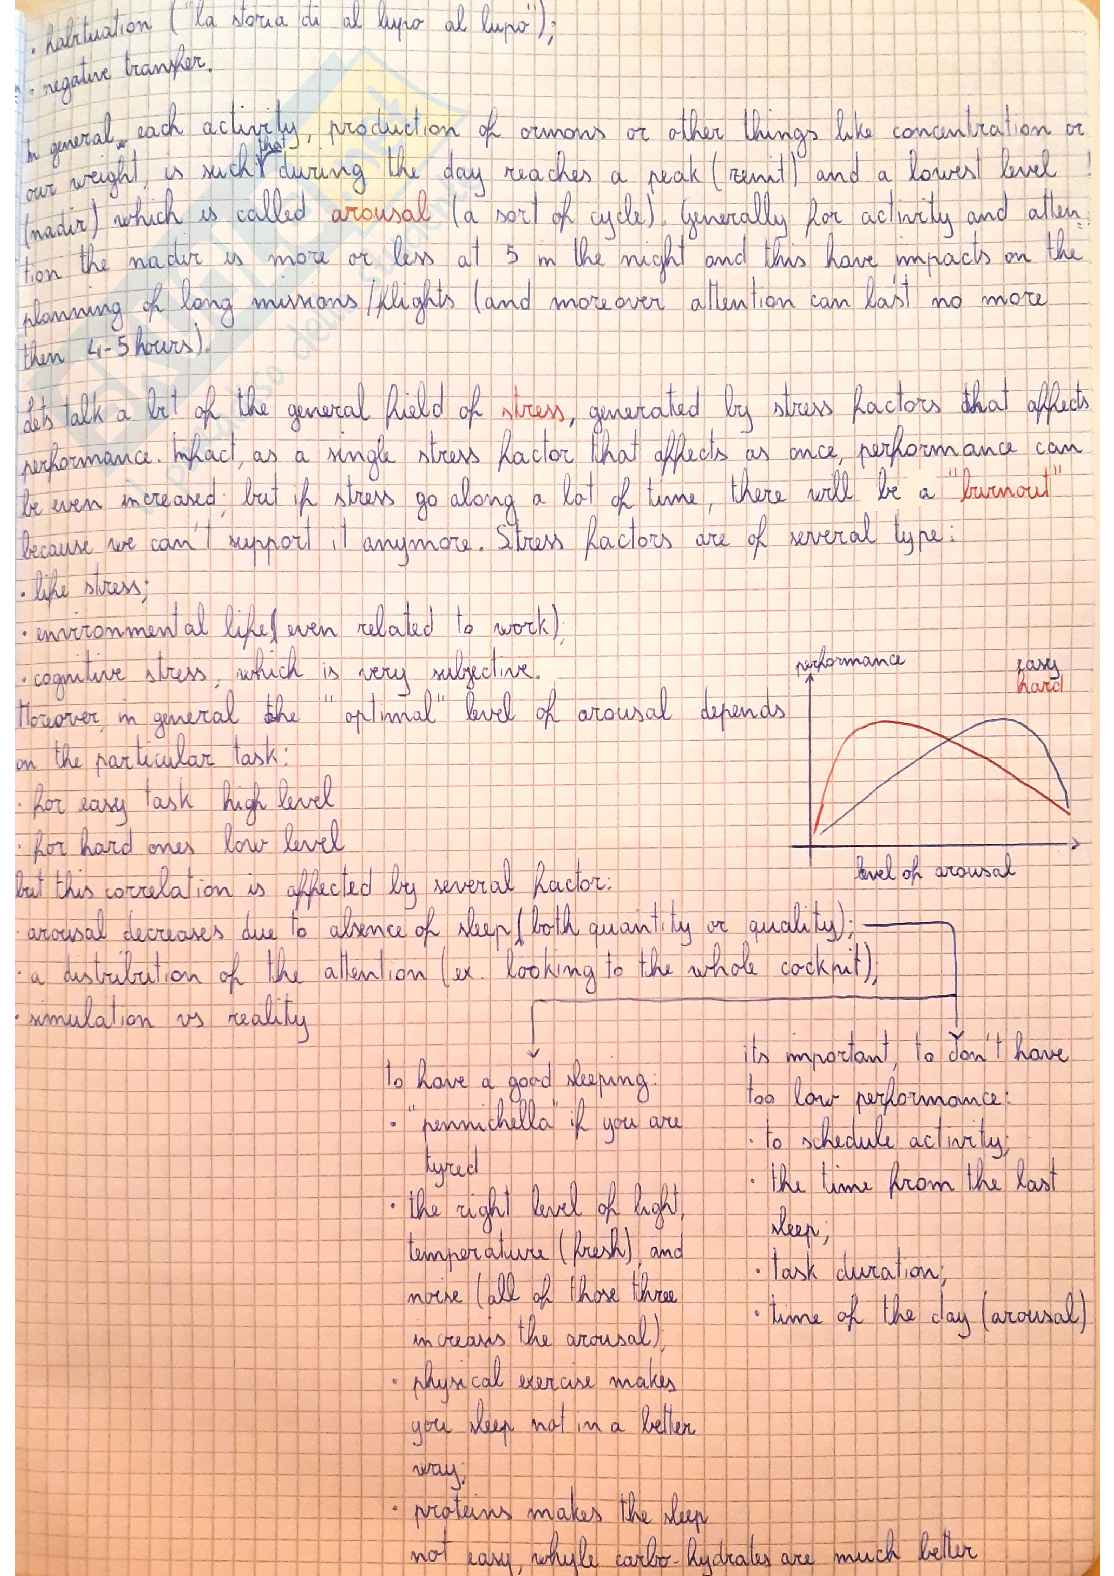 · habituation ("la storia di al lupo al lupo");
· negative transfer.
In general, each activity, production of ormons or other things like concentration or
our weight, is such that during the day reaches a peak (zenit) and a lowest level
(nadir) which is called arousal (a sort of cycle). Generally for activity and atten-
tion the nadir is more or less at 5 in the night and this have impacts on the
planning of long missions/flights (and moreover attention can last no more
then 4-5 hours).
Lets talk a bit of the general field of stress, generated by stress factors that affects
performance. Infact, as a single stress factor that affects as once, performance can
be even increased; but if stress go along a lot of time, there will be a "burnout"
because we can't support it anymore. Stress factors are of several type:
· life stress;
· environmental life (even related to work);
· cognitive stress, which is very subjective.
Moreover, in general the "optimal" level of arousal depends
on the particular task:
· for easy task high level
· for hard ones low level
but this correlation is affected by several factor:
· arousal decreases due to absence of sleep (both quantity or quality);
· a distribution of the attention (ex. looking to the whole cockpit);
· simulation vs reality
performance
easy
hard
level of arousal
to have a good sleeping:
· "pennichella" if you are
tyred
· the right level of light,
temperature (fresh), and
noise (all of those three
increasis the arousal);
· physical exercise makes
you sleep not in a better
way;
· proteins makes the sleep
not easy, whyle carbo-hydrates are much better
its important, to don't have
too low performance:
· to schedule activity;
· the time from the last
sleep;
· task duration;
· time of the day (arousal)